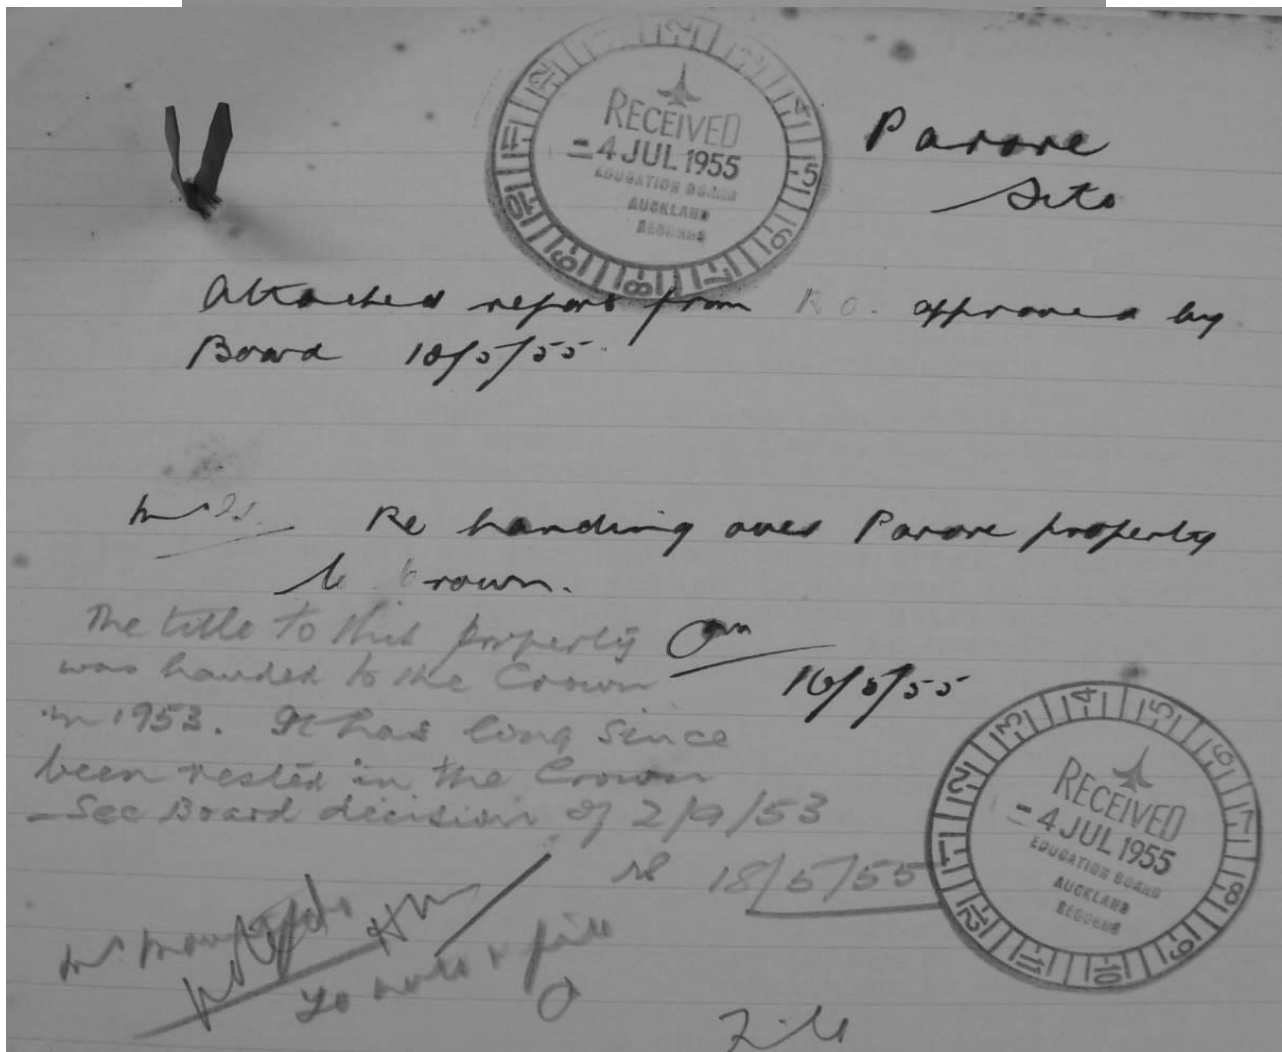 RECEIVED
- 4 JUL 1955
EDUCATION BOARD
AUCKLAND
RECORDS
Parore
Site
Attached report from R.O. approved by
Board 18/5/55.
Re handing over Parore property
to Crown.
The title to this property
was handed to the Crown
in 1953. It has long since
been vested in the Crown
- See Board decision of 2/9/53
16/5/55
18/5/55
RECEIVED
- 4 JUL 1955
EDUCATION BOARD
AUCKLAND
RECORDS
Mr.
To note & file
File